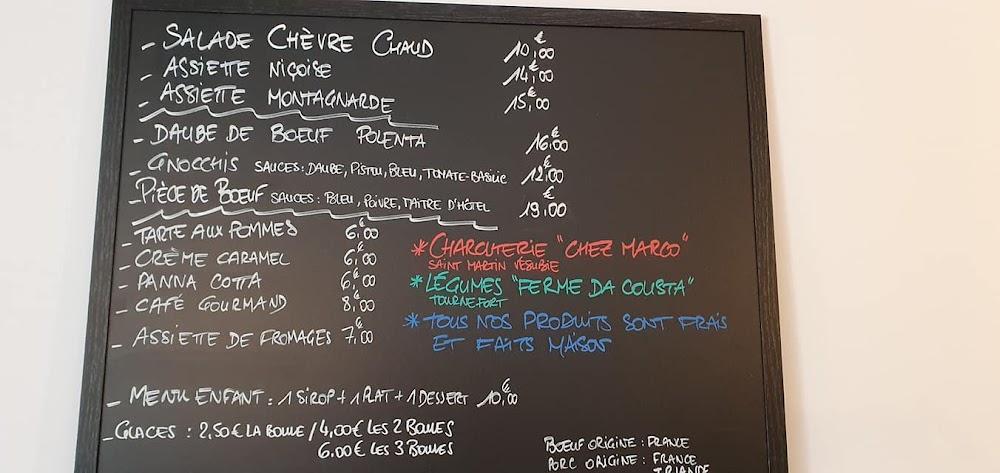 - SALADE CHÈVRE CHAUD 10,00€
- ASSIETTE NIÇOISE 14,00€
- ASSIETTE MONTAGNARDE 15,00€
- DAUBE DE BOEUF POLENTA 16,00€
- GNOCCHIS SAUCES : DAUBE, PISTOU, BLEU, TOMATE-BASILIC 12,00€
- PIÈCE DE BOEUF SAUCES : BLEU, POIVRE, MAITRE D'HÔTEL 19,00€
- TARTE AUX POMMES 6,00€
- CRÈME CARAMEL 6,00€
- PANNA COTTA 6,00€
- CAFÉ GOURMAND 8,00€
- ASSIETTE DE FROMAGES 7,00€
* CHARCUTERIE "CHEZ MARCO"
SAINT MARTIN VÉSUBIE
* LÉGUMES "FERME DA COUSTA"
TOURNEFORT
* TOUS NOS PRODUITS SONT FRAIS
ET FAITS MAISON
- MENU ENFANT : 1 SIROP + 1 PLAT + 1 DESSERT 10,00€
- GLACES : 2,50€ LA BOULE / 4,00€ LES 2 BOULES
6,00€ LES 3 BOULES
BOEUF ORIGINE : FRANCE
PORC ORIGINE : FRANCE
IRLANDE